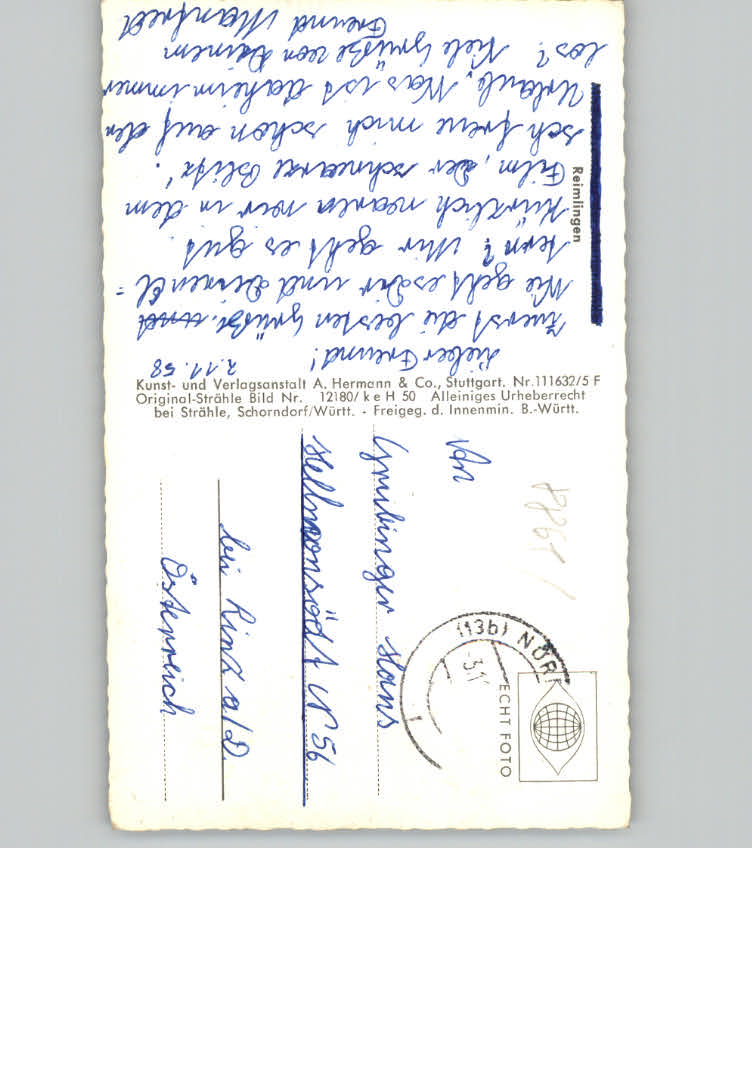 2.11.58
Lieber Freund!
Zuerst die besten Grüße. und
Wie geht es Dir und Deinen El-
tern? Mir geht es gut.
Kürzlich waren wir in dem
Film, Der schwarze Blitz'.
Ich freue mich schon auf den
Urlaub. Was ist daheim immer
los? Viele Grüße von Deinem
Freund Manfred
Reimlingen
Kunst- und Verlagsanstalt A. Hermann & Co., Stuttgart. Nr.111632/5 F
Original-Strähle Bild Nr. 12180/ k e H 50 Alleiniges Urheberrecht
bei Strähle, Schorndorf/Württ. - Freigeg. d. Innenmin. B.-Württ.
An
Hans
Hellmonsödt Nr 56
bei Linz a/D.
Österreich
(13b) NÖR
ECHT FOTO